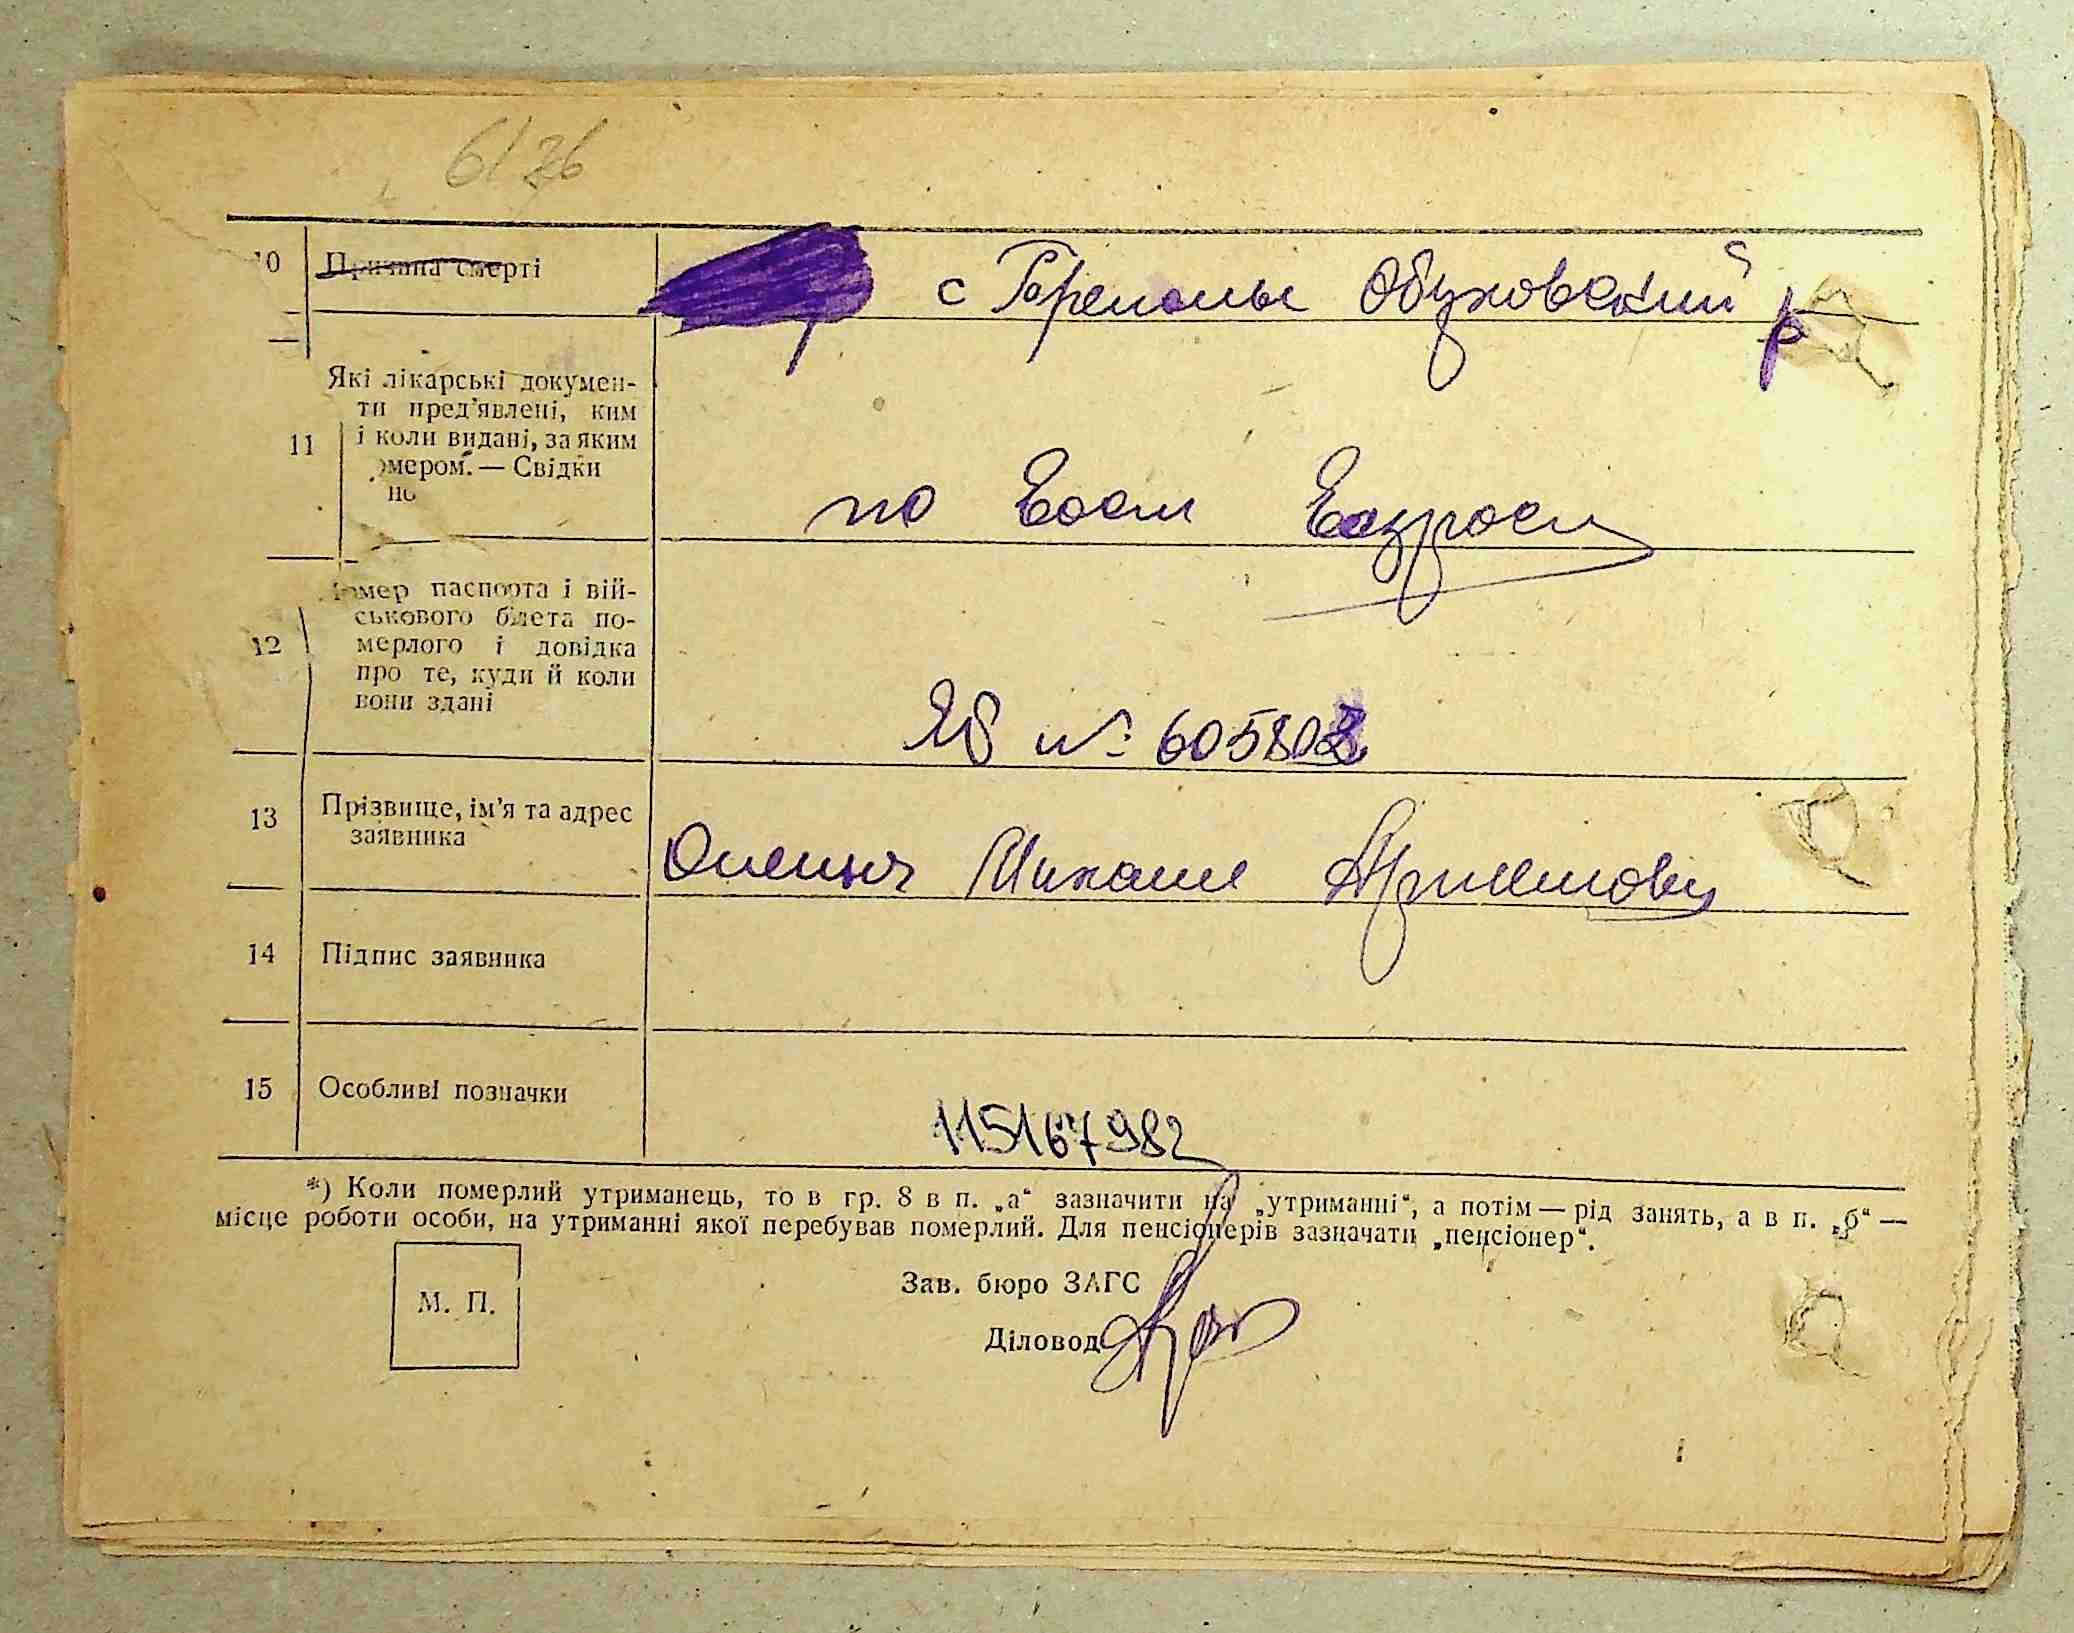 6/76
10 Причина смерті
Які лікарські докумен-
ти пред'явлені, ким
11 і коли видані, за яким
омером. — Свідки
по
по
12 Номер паспорта і вій-
ськового білета по-
мерлого і довідка
про те, куди й коли
вони здані
№ 605803
13 Прізвище, ім'я та адрес
заявника
Михаил
14 Підпис заявника
15 Особливі позначки
115167982
*) Коли померлий утриманець, то в гр. 8 в п. „а“ зазначити на „утриманні“, а потім — рід занять, а в п. „б“ —
місце роботи особи, на утриманні якої перебував померлий. Для пенсіонерів зазначати „пенсіонер“.
М. П.
Зав. бюро ЗАГС
Діловод